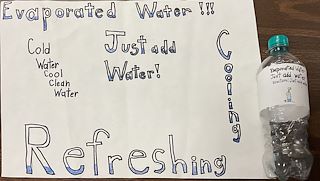 Evaporated Water !!!
Cold
Water
Cool
Clean
Water
Just add
Water!
Cooling
Refreshing
Evaporated Water
Just add water